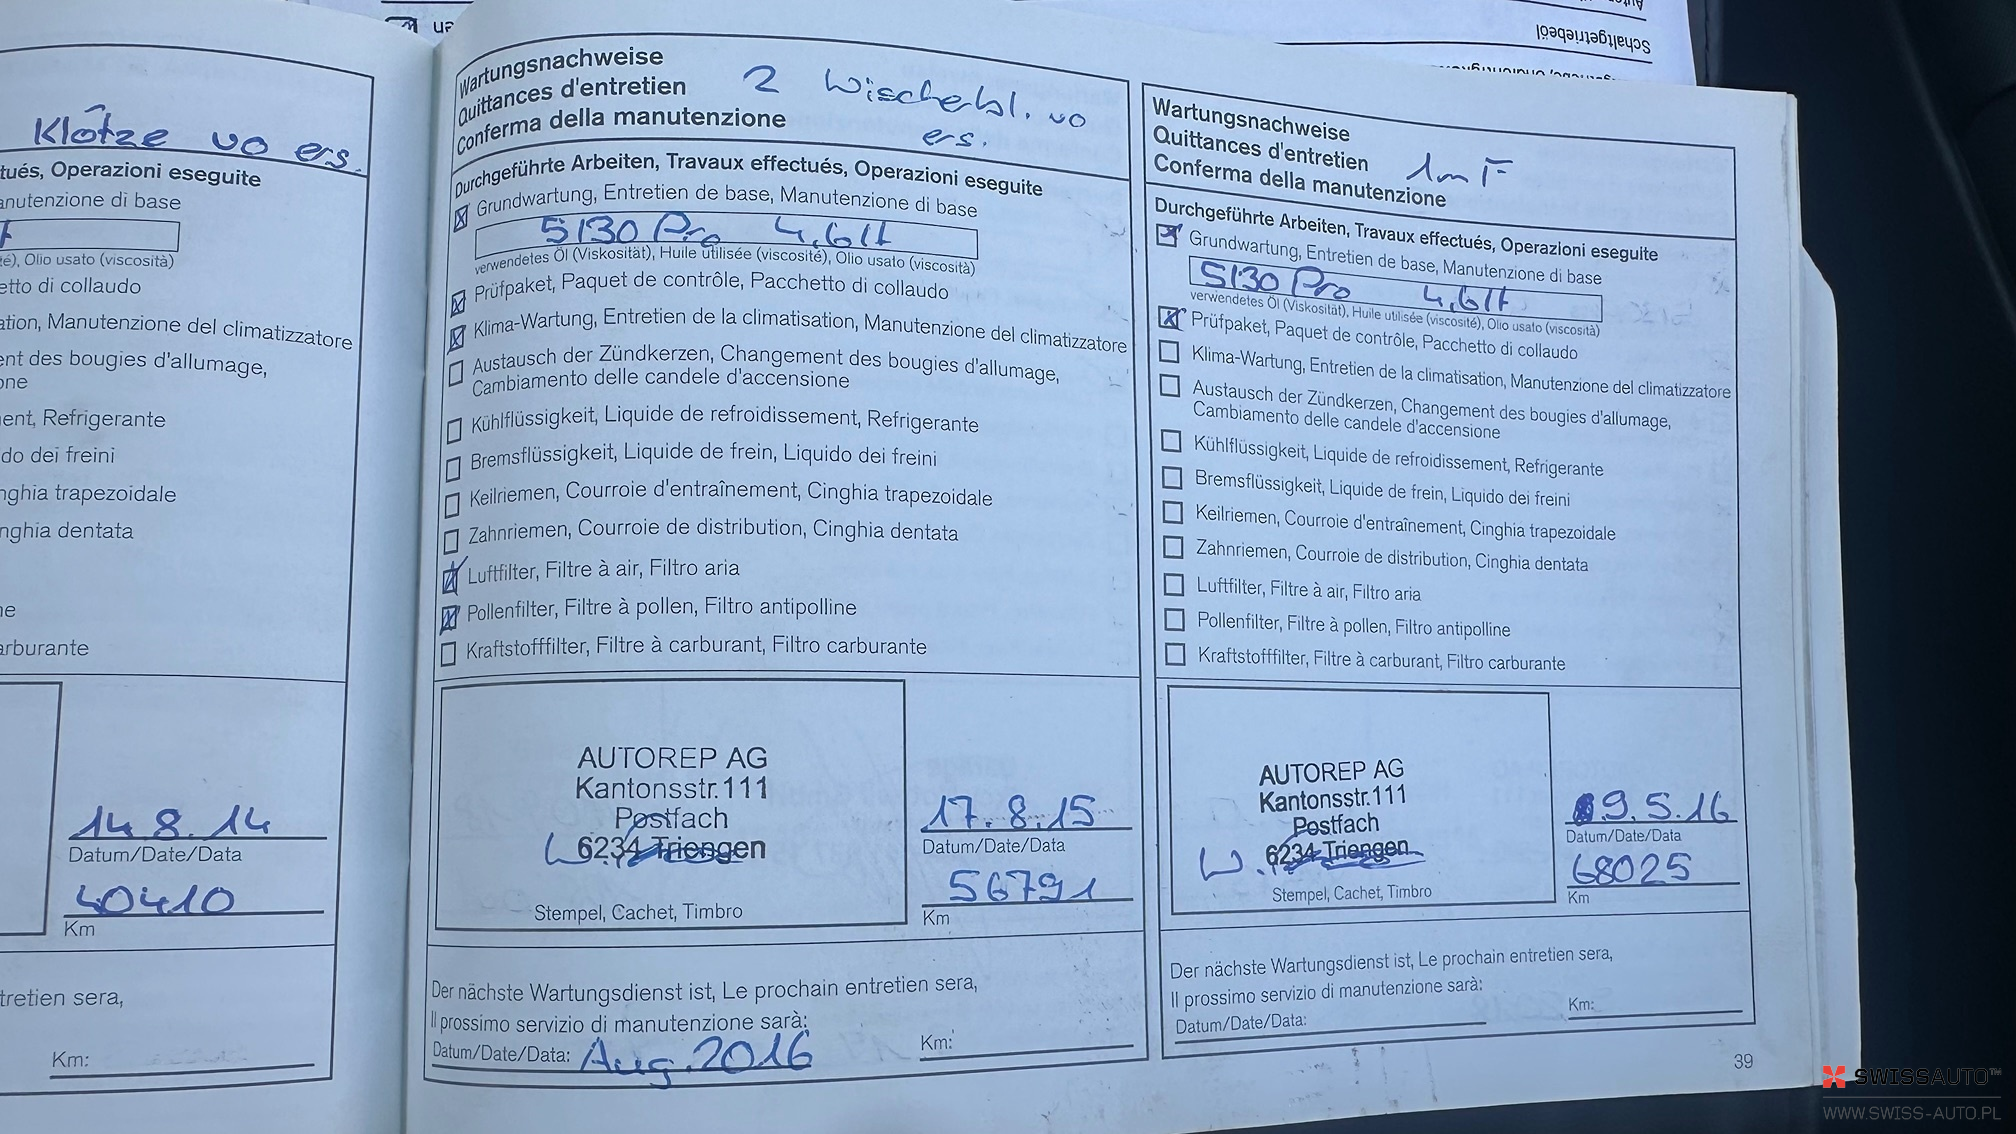 Schaltgetriebeöl
Klötze vo ers.
tués, Operazioni eseguite
anutenzione di base
té), Olio usato (viscosità)
etto di collaudo
ation, Manutenzione del climatizzatore
ent des bougies d'allumage,
one
ent, Refrigerante
do dei freini
nghia trapezoidale
nghia dentata
ne
arburante
14.8.14
Datum/Date/Data
40410
Km
tretien sera,
Km:
Wartungsnachweise
Quittances d'entretien
Conferma della manutenzione
2 Wischerbl. vo
ers.
Durchgeführte Arbeiten, Travaux effectués, Operazioni eseguite
Grundwartung, Entretien de base, Manutenzione di base
5130 Pro 4,6lt
verwendetes Öl (Viskosität), Huile utilisée (viscosité), Olio usato (viscosità)
Prüfpaket, Paquet de contrôle, Pacchetto di collaudo
Klima-Wartung, Entretien de la climatisation, Manutenzione del climatizzatore
Austausch der Zündkerzen, Changement des bougies d'allumage,
Cambiamento delle candele d'accensione
Kühlflüssigkeit, Liquide de refroidissement, Refrigerante
Bremsflüssigkeit, Liquide de frein, Liquido dei freini
Keilriemen, Courroie d'entraînement, Cinghia trapezoidale
Zahnriemen, Courroie de distribution, Cinghia dentata
Luftfilter, Filtre à air, Filtro aria
Pollenfilter, Filtre à pollen, Filtro antipolline
Kraftstofffilter, Filtre à carburant, Filtro carburante
AUTOREP AG
Kantonsstr.111
Postfach
6234 Triengen
Stempel, Cachet, Timbro
17.8.15
Datum/Date/Data
56791
Km
Der nächste Wartungsdienst ist, Le prochain entretien sera,
Il prossimo servizio di manutenzione sarà:
Datum/Date/Data: Aug. 2016
Km:
Wartungsnachweise
Quittances d'entretien
Conferma della manutenzione
1m F
Durchgeführte Arbeiten, Travaux effectués, Operazioni eseguite
Grundwartung, Entretien de base, Manutenzione di base
5130 Pro 4,6lt
verwendetes Öl (Viskosität), Huile utilisée (viscosité), Olio usato (viscosità)
Prüfpaket, Paquet de contrôle, Pacchetto di collaudo
Klima-Wartung, Entretien de la climatisation, Manutenzione del climatizzatore
Austausch der Zündkerzen, Changement des bougies d'allumage,
Cambiamento delle candele d'accensione
Kühlflüssigkeit, Liquide de refroidissement, Refrigerante
Bremsflüssigkeit, Liquide de frein, Liquido dei freini
Keilriemen, Courroie d'entraînement, Cinghia trapezoidale
Zahnriemen, Courroie de distribution, Cinghia dentata
Luftfilter, Filtre à air, Filtro aria
Pollenfilter, Filtre à pollen, Filtro antipolline
Kraftstofffilter, Filtre à carburant, Filtro carburante
AUTOREP AG
Kantonsstr.111
Postfach
6234 Triengen
Stempel, Cachet, Timbro
9.5.16
Datum/Date/Data
68025
Km
Der nächste Wartungsdienst ist, Le prochain entretien sera,
Il prossimo servizio di manutenzione sarà:
Datum/Date/Data:
Km:
39
SWISSAUTO™
WWW.SWISS-AUTO.PL